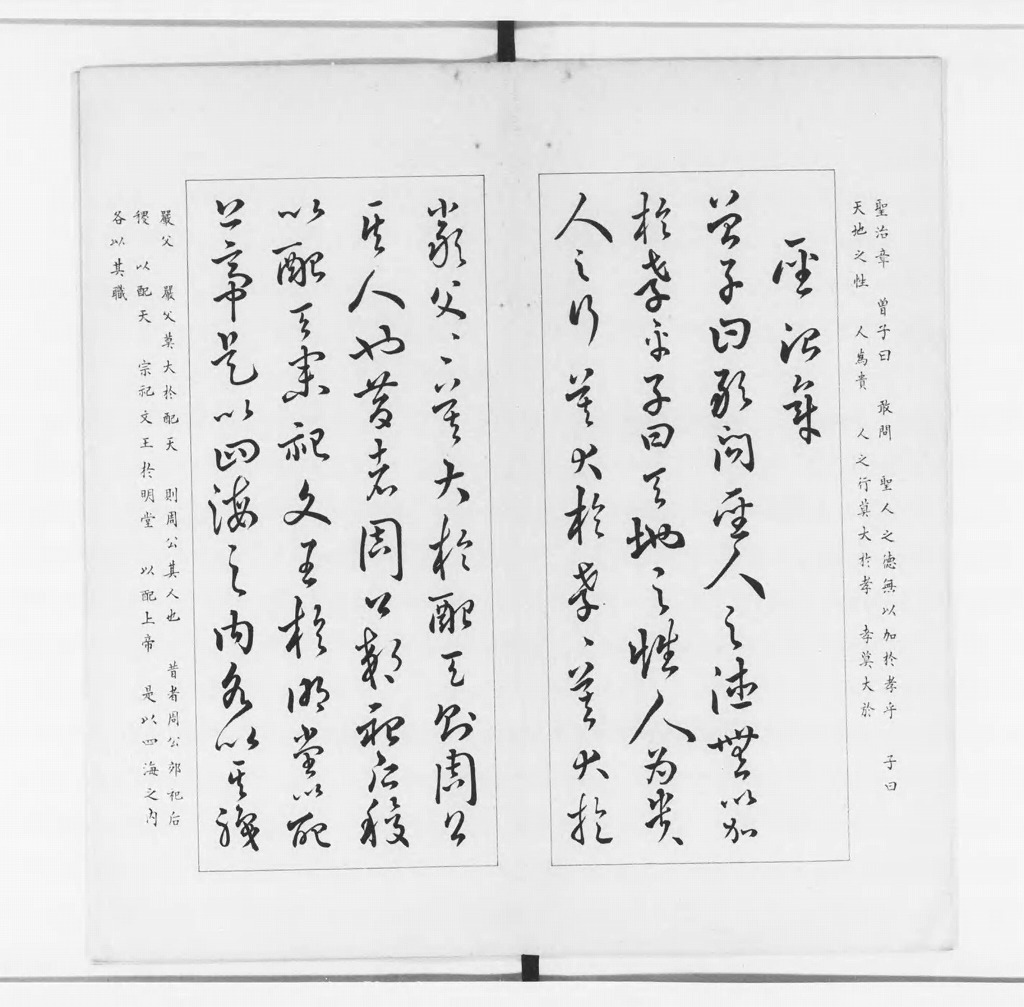 聖治章 曾子曰 敢問 聖人之德無以加於孝乎 子曰
天地之性 人為貴 人之行莫大於孝 孝莫大於
聖治章
曾子曰敢問聖人之德無以加
於孝乎子曰天地之性人為貴
人之行莫大於孝〻莫大於
嚴父〻〻莫大於配天則周公
其人也昔者周公郊祀后稷
以配天宗祀文王於明堂以配
上帝是以四海之內各以其職
嚴父 嚴父莫大於配天 則周公其人也 昔者周公郊祀后
稷 以配天 宗祀文王於明堂 以配上帝 是以四海之內
各以其職